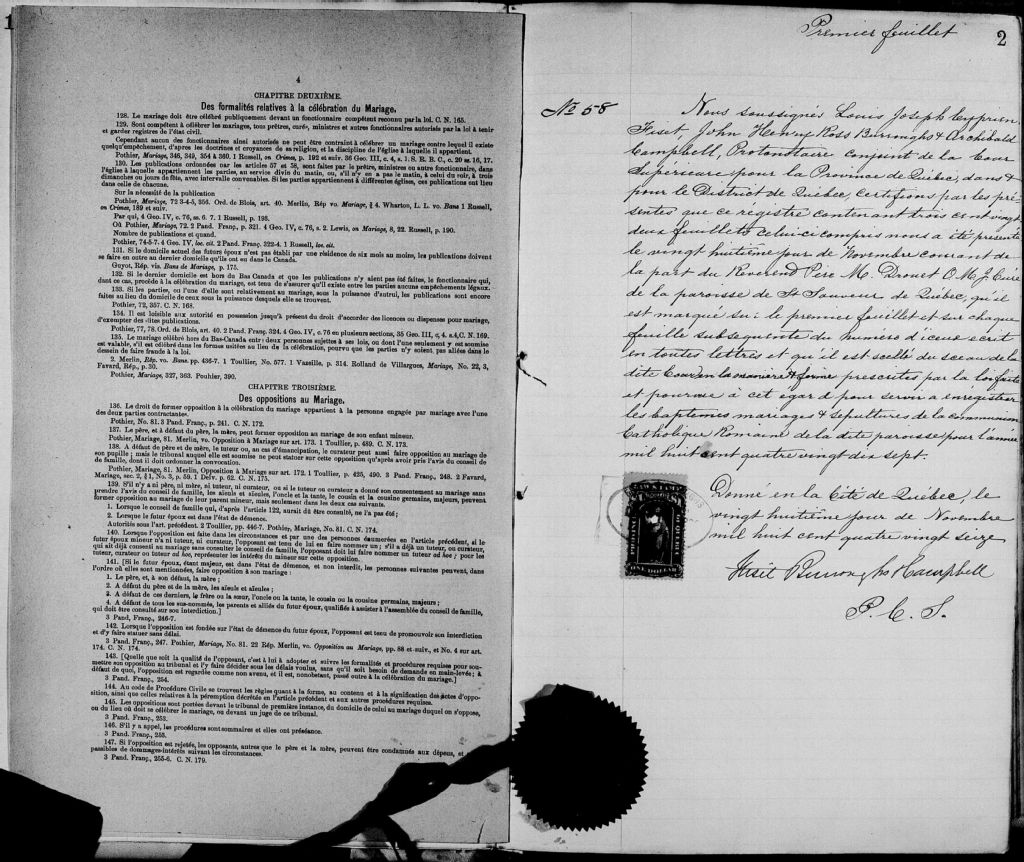 4
CHAPITRE DEUXIÈME.
Des formalités relatives à la célébration du Mariage.
128. Le mariage doit être célébré publiquement devant un fonctionnaire compétent reconnu par la loi. C. N. 165.
129. Sont compétents à célébrer les mariages, tous prêtres, curés, ministres et autres fonctionnaires autorisés par la loi à tenir
et garder registres de l'état civil.
Cependant aucun des fonctionnaires ainsi autorisés ne peut être contraint à célébrer un mariage contre lequel il existe
quelqu'empêchement, d'après les doctrines et croyances de sa religion, et la discipline de l'église à laquelle il appartient.
Pothier, Mariage, 346, 349, 354 à 360. 1 Russell, on Crimes, p. 192 et suiv. 36 Geo. III, c. 4, s. 1. S. R. B. C., c. 20 ss. 16, 17.
130. Les publications ordonnées par les articles 57 et 58, sont faites par le prêtre, ministre ou autre fonctionnaire, dans
l'église à laquelle appartiennent les parties, au service divin du matin, ou, s'il n'y en a pas le matin, à celui du soir, à trois
dimanches ou jours de fête, avec intervalle convenables. Si les parties appartiennent à différentes églises, ces publications ont lieu
dans celle de chacune.
Sur la nécessité de la publication
Pothier, Mariage, 72 3-4-5, 356. Ord. de Blois, art. 40. Merlin, Rép vo. Mariage, § 4. Wharton, L. L. vo. Bans 1 Russell,
on Crimes, 189 et suiv.
Par qui, 4 Geo. IV, c. 76, ss. 6. 7. 1 Russell, p. 193.
Où Pothier, Mariage, 72. 2 Pand. Franç., p. 321. 4 Geo. IV, c. 76, s. 2. Lewis, on Mariage, 8, 22. Russell, p. 190.
Nombre de publications et quand.
Pothier, 74-5-7. 4 Geo. IV, loc. cit. 2 Pand. Franç. 322-4. 1 Russell, loc. cit.
131. Si le domicile actuel des futurs époux n'est pas établi par une résidence de six mois au moins, les publications doivent
se faire en outre au dernier domicile qu'ils ont eu dans le Canada.
Guyot, Rép. vis. Bans de Mariage, p. 175.
132. Si le dernier domicile est hors du Bas Canada et que les publications n'y aient pas été faites, le fonctionnaire qui,
dans ce cas, procède à la célébration du mariage, est tenu de s'assurer qu'il existe entre les parties aucuns empêchements légaux.
133. Si les parties, ou l'une d'elle sont relativement au mariage, sous la puissance d'autrui, les publications sont encore
faites au lieu du domicile de ceux sous la puissance desquels elle se trouvent.
Pothier, 72, 357. C. N. 168.
134. Il est loisible aux autorité en possession jusqu'à présent du droit d'accorder des licences ou dispenses pour mariage,
d'exempter des dites publications.
Pothier, 77, 78. Ord. de Blois, art. 40. 2 Pand. Franç. 324. 4 Geo. IV, c. 76 en plusieurs sections, 35 Geo. III, c, 4, s.4, C. N. 169.
135. Le mariage célébré hors du Bas-Canada entre deux personnes sujettes à ses lois, ou dont l'une seulement y est soumise
est valable, s'il est célébré dans les formes usitées au lieu de la célébration, pourvu que les parties n'y soient pas allées dans le
dessein de faire fraude à la loi.
2. Merlin, Rép. vo. Bans. pp. 436-7. 1 Toullier, No. 577. 1 Vazeille, p. 314. Rolland de Villargues, Mariage, No. 22, 3,
Favard, Rép., p. 30.
Pothier, Mariage, 327, 363. Pouhier, 390.
CHAPITRE TROISIÈME.
Des oppositions au Mariage.
136. Le droit de former opposition à la célébration du mariage appartient à la personne engagée par mariage avec l'une
des deux parties contractantes.
Pothier, No. 81. 3 Pand. Franç., p. 241. C. N. 172.
137. Le père, et à défaut du père, la mère, peut former opposition au mariage de son enfant mineur.
Pothier, Mariage, 81. Merlin, vo. Opposition à Mariage sur art. 173. 1 Toullier, p. 489. C. N. 173.
138. A défaut de père et de mère, le tuteur ou, au cas d'émancipation, le curateur peut aussi faire opposition au mariage de
son pupille ; mais le tribunal auquel elle est soumise ne peut statuer sur cette opposition qu'après avoir pris l'avis du conseil de
famille, dont il doit ordonner la convocation.
Pothier, Mariage, 81. Merlin, Opposition à Mariage sur art. 172. 1 Toullier, p. 425, 490. 3 Pand. Franç., 248. 2 Favard,
Mariage, sec. 2, § 1, No. 3, p. 59. 1 Delv. p. 62. C. N. 175.
139. S'il n'y a ni père, ni mère, ni tuteur, ni curateur, ou si le tuteur ou curateur a donné son consentement au mariage sans
prendre l'avis du conseil de famille, les aïeuls et aïeules, l'oncle et la tante, le cousin et la cousine germaine, majeurs, peuvent
former opposition au mariage de leur parent mineur, mais seulement dans les deux cas suivants.
1. Lorsque le conseil de famille qui, d'après l'article 122, aurait dû être consulté, ne l'a pas été ;
2. Lorsque le futur époux est dans l'état de démence.
Autorités sous l'art. précédent. 2 Toullier, pp. 446-7. Pothier, Mariage, No. 81. C. N. 174.
140. Lorsque l'opposition est faite dans les circonstances et par une des personnes énumérées en l'article précédent, si le
futur époux mineur n'a ni tuteur, ni curateur, l'opposant est tenu de lui en faire nommer un ; s'il a déjà un tuteur, ou curateur,
qui ait déjà consenti au mariage sans consulter le conseil de famille, l'opposant doit lui faire nommer un tuteur ad hoc ; pour les
tuteur, curateur ou tuteur ad hoc, représenter les intérêts du mineur sur cette opposition.
141. [Si le futur époux, étant majeur, est dans l'état de démence, et non interdit, les personnes suivantes peuvent, dans
l'ordre où elles sont mentionnées, faire opposition à son mariage :
1. Le père, et, à son défaut, la mère ;
2. A défaut du père et de la mère, les aïeuls et aïeules ;
3. A défaut de ces derniers, le frère ou la sœur, l'oncle ou la tante, le cousin ou la cousine germains, majeurs ;
4. A défaut de tous les sus-nommés, les parents et alliés du futur époux, qualifiés à assister à l'assemblée du conseil de famille,
qui doit être consulté sur son interdiction.]
3 Pand. Franç., 246-7.
142. Lorsque l'opposition est fondée sur l'état de démence du futur époux, l'opposant est tenu de promouvoir son interdiction
et d'y faire statuer sans délai.
3 Pand. Franç., 247. Pothier, Mariage, No. 81. 22 Rép. Merlin, vo. Opposition au Mariage, pp. 88 et suiv., et No. 4 sur art.
174. C. N. 174.
143. [Quelle que soit la qualité de l'opposant, c'est à lui à adopter et suivre les formalités et procédures requises pour sou-
mettre son opposition au tribunal et l'y faire décider sous les délais voulus, sans qu'il soit besoin de demande en main-levée ; à
défaut de quoi, l'opposition est regardée comme non avenu, et il est, nonobstant, passé outre à la célébration du mariage.]
3 Pand. Franç., 254.
144. Au code de Procédure Civile se trouvent les règles quant à la forme, au contenu et à la signification des actes d'oppo-
sition, ainsi que celles relatives à la péremption décrétée en l'article précédent et aux autres procédures requises.
145. Les oppositions sont portées devant le tribunal de première instance, du domicile de celui au mariage duquel on s'oppose,
ou du lieu où doit se célébrer le mariage, ou devant un juge de ce tribunal.
3 Pand. Franç., 253.
146. S'il y a appel, les procédures sont sommaires et elles ont préséance.
3 Pand. Franç., 255.
147. Si l'opposition est rejetée, les opposants, autres que le père et la mère, peuvent être condamnés aux dépens, et
passibles de dommages-intérêts suivant les circonstances.
3 Pand. Franç., 255-6. C. N. 179.
Premier feuillet
2
No 58
Nous soussignés Louis Joseph Cyprien
Fiset, John Henry Ross Burroughs & Archibald
Campbell, Protonotaire conjoint de la Cour
Supérieure pour la Province de Québec, dans &
pour le District de Québec, certifions par les pré-
sentes que ce régistre contenant trois cent vingt
deux feuillets celui-ci compris nous a été présenté
le vingt huitième jour de Novembre courant de
la part du Révérend Père M. Drouet O. M. J. Curé
de la paroisse de St Sauveur de Québec, qu'il
est marqué sur le premier feuillet et sur chaque
feuillet subséquent du numéro d'iceux écrit
en toutes lettres et qu'il est scellé du sceau de la
dite Cour, en la manière & forme prescrites par la loi faite
et pourvue à cet égard pour servir à enregistrer
les baptêmes mariages & sépultures de la communion
Catholique Romaine de la dite paroisse pour l'année
mil huit cent quatre vingt dix sept.
Donné en la Cité de Québec, le
vingt huitième jour de Novembre
mil huit cent quatre vingt seize
Fiset Burroughs & Campbell
P. C. S.
ONE DOLLAR